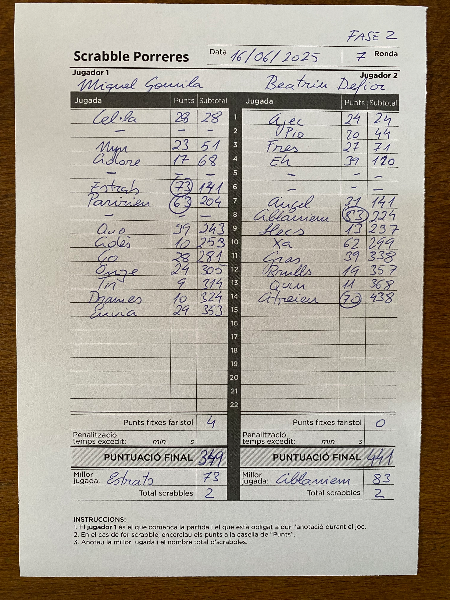 FASE 2
Scrabble Porreres Data 16/06/2025 7 Ronda
Jugador 1 Jugador 2
Miquel Gomila
Jugada Punts Subtotal Jugada Punts Subtotal
28 28 1 Ajec 24 24
– – 2 Pio 20 44
23 51 3 Fres 27 71
17 68 4 Eh 39 110
– – 5 – –
Estrats 73 141 6 – –
63 204 7 Angel 31 141
– – 8 83 224
39 243 9 13 237
10 253 10 Xa 62 299
28 281 11 Gras 39 338
24 305 12 19 357
9 314 13 11 368
10 324 14 70 438
Envia 29 353 15
16
17
18
19
20
21
22
Punts fitxes faristol 4 Punts fitxes faristol 0
Penalització temps excedit: min s Penalització temps excedit: min s
PUNTUACIÓ FINAL 349 PUNTUACIÓ FINAL 441
Millor jugada: Estrats 73 Millor jugada: 83
Total scrabbles 2 Total scrabbles 2
INSTRUCCIONS:
1. El jugador 1 és el que comença la partida i el que està obligat a dur l'anotació durant el joc.
2. En el cas de fer scrabble, encercleu els punts a la casella de "Punts".
3. Anoteu la millor jugada i el nombre total d'scrabbles.